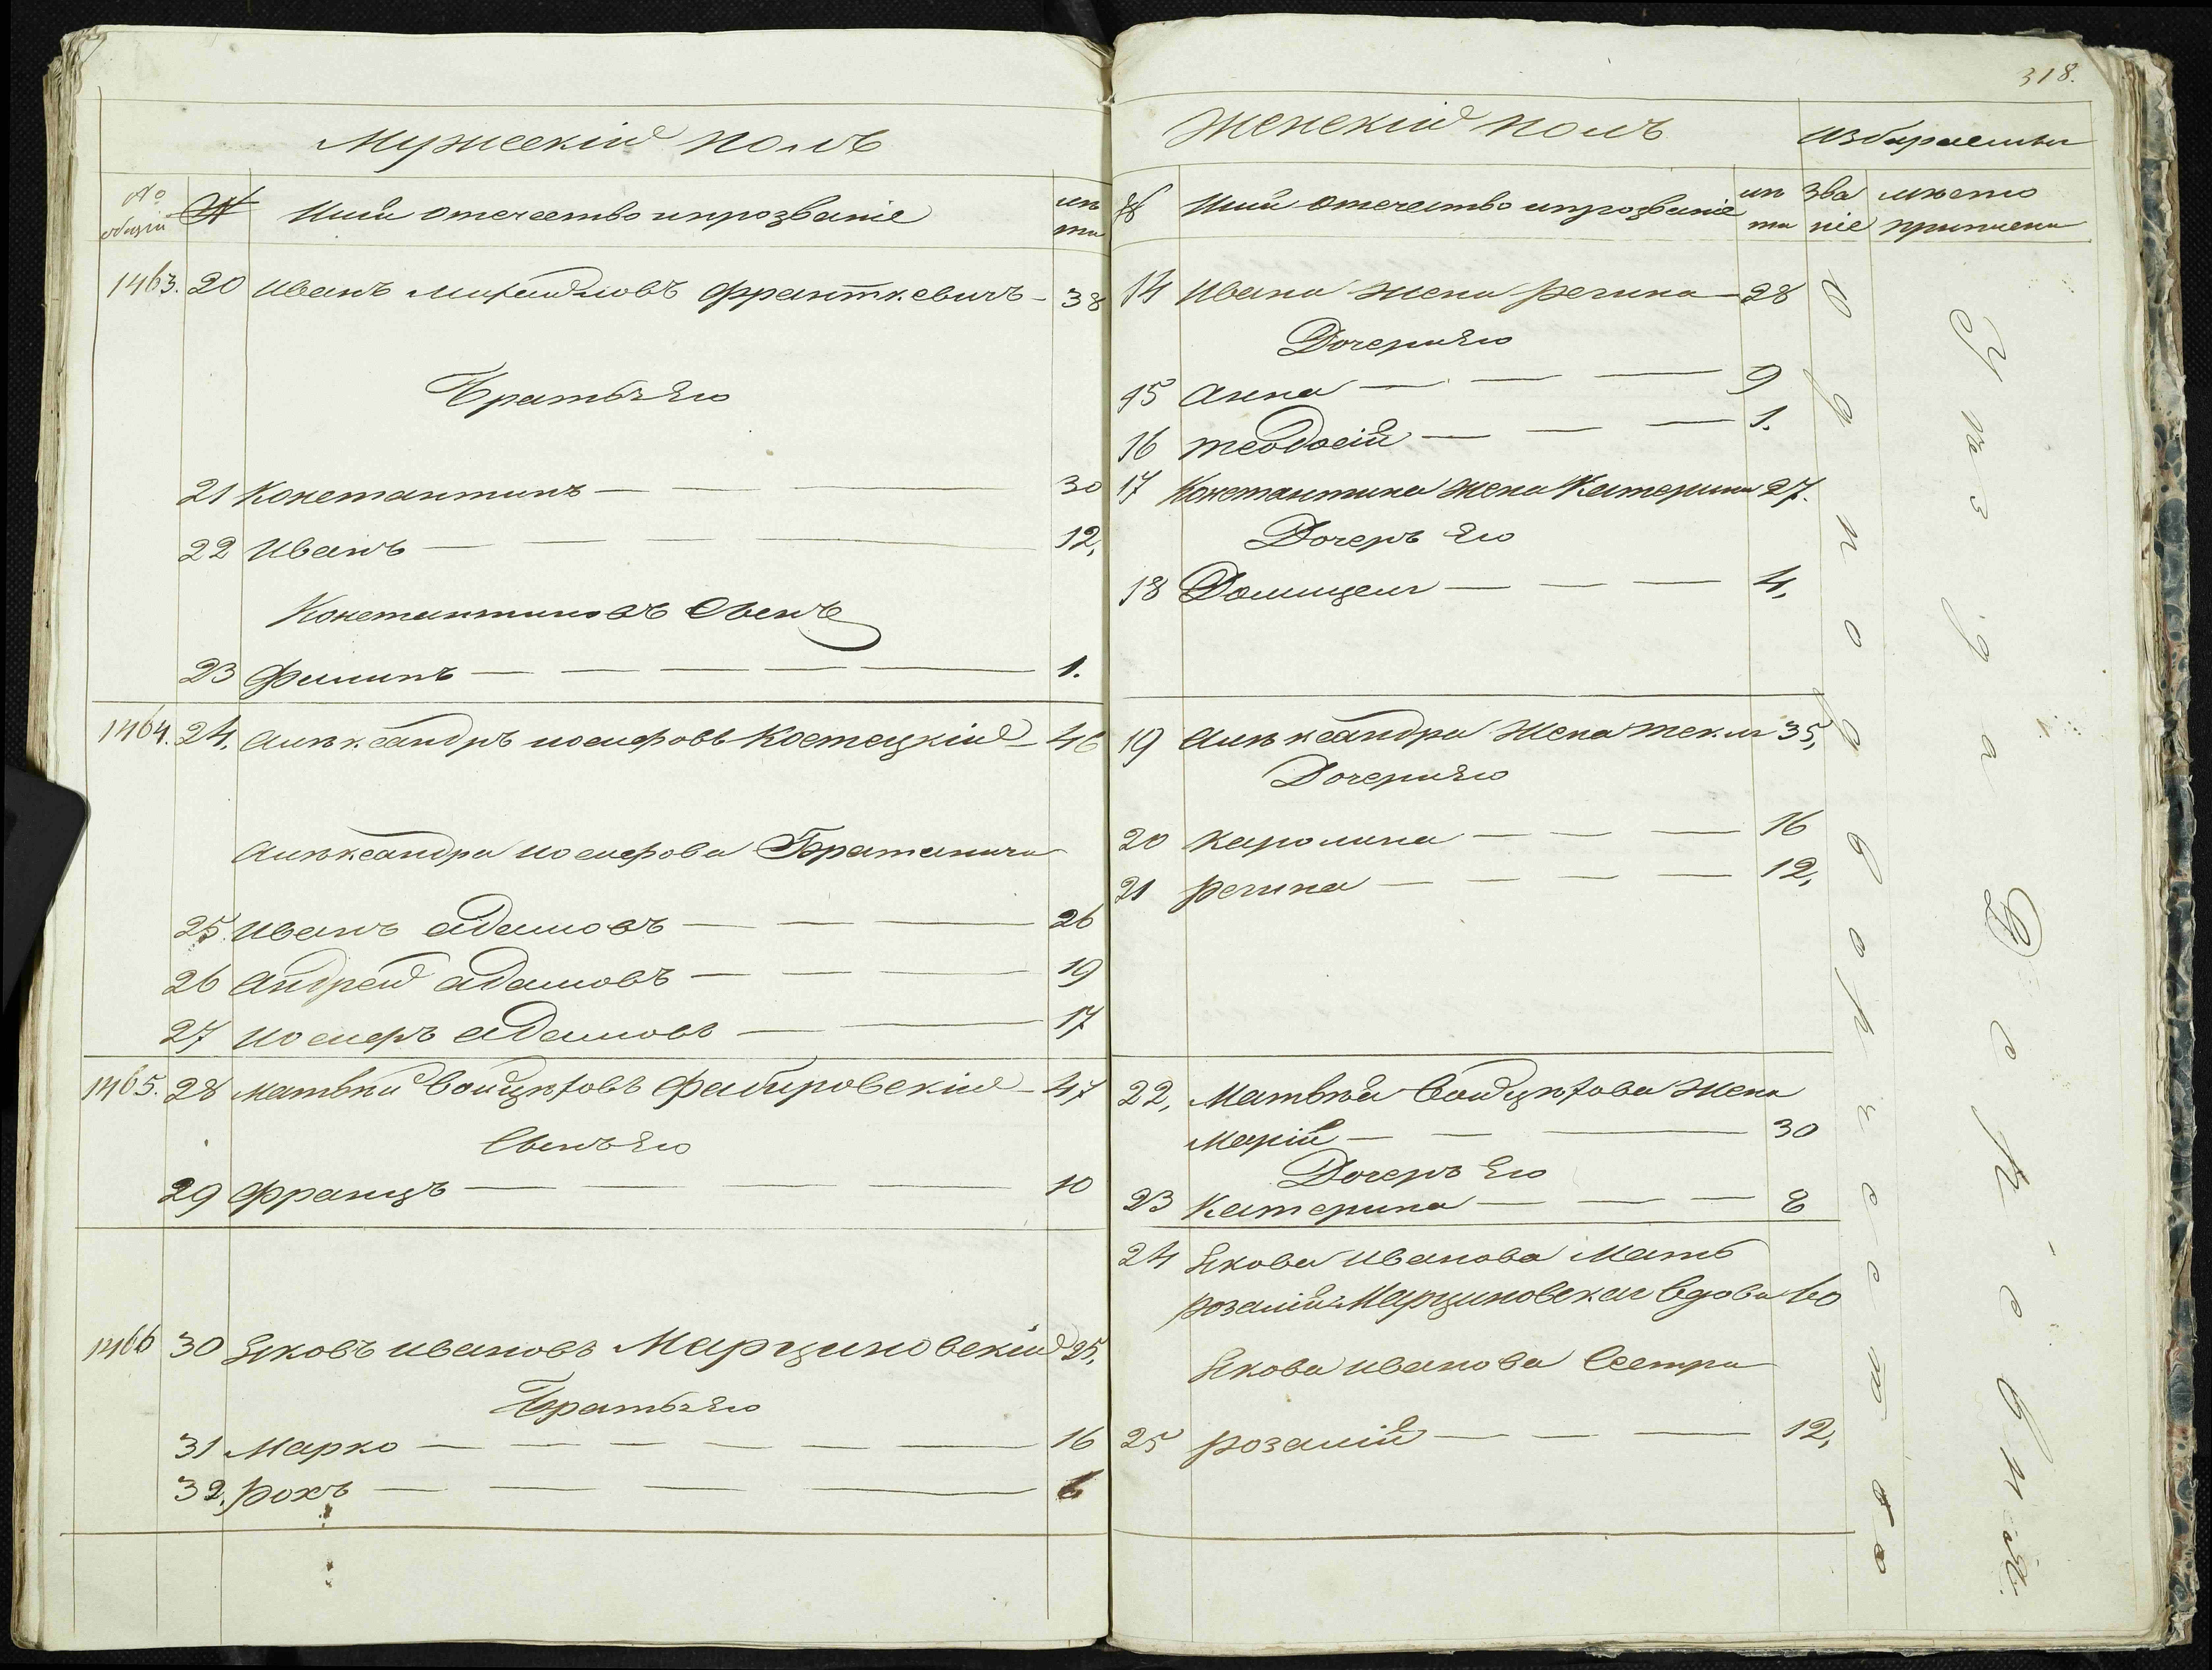 Мужескій полъ
№ общій № Имя отечество ипрозваніе лѣта
1463. 20 Иванъ Михайловъ Франткевичъ — 38
Братья Его
21 Константинъ — 30
22 Иванъ — 12,
Константиновъ Сынъ
23 Филипъ — 1.
1464. 24, Алѣксандръ иосифовъ Костецкій — 46
Алѣксандра иосифова Братаничи
25. Иванъ адамовъ — 26
26 Андрей адамовъ — 19
27 Иосифъ адамовъ — 17
1465. 28 Матвѣй Войцѣховъ Фабировскій — 47
Сынъ Его
29 Францъ — 10
1466 30 Яковъ ивановъ Марциновскій 25,
Братья Его
31 Марко — 16
32, Рохъ — 6
318.
Женскій полъ
избираемыи
№ Имя отечество ипрозваніе лѣта званіе мѣсто приписки
14 Ивана жена Регина — 28
Дочери Его
15 Анна — 9
16 Теодосія — 1.
17 Константина жена Катерина 27.
Дочеръ Его
18 Домицеля — 4,
19 Алѣксандра Жена Текля 35,
Дочери Его
20 Каролина — 16
21 Регина — 12,
22, Матвѣя Войцѣхова Жена
Марія — 30
Дочеръ Его
23 Катерина — 8
24 Якова Иванова Мать
Розалія Марциновская вдова 60
Якова иванова Сестра
25 Розалія — 12,
Однодворчество
Уѣзда Деревни